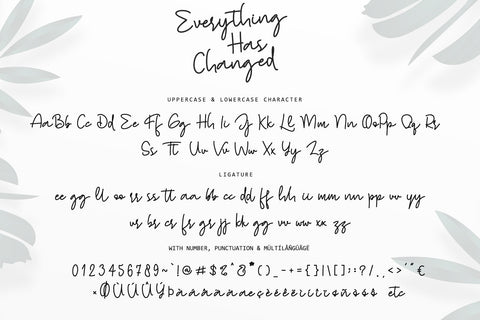 Everything
Has
Changed
UPPERCASE & LOWERCASE CHARACTER
Aa Bb Cc Dd Ee Ff Gg Hh Ii Jj Kk Ll Mm Nn Oo Pp Qq Rr
Ss Tt Uu Vv Ww Xx Yy Zz
LIGATURE
ee gg ll oo rr ss tt aa bb cc dd ff hh ii mm nn pp vv yy
vr br cr fr gr jj kk qq vv ww xx zz
WITH NUMBER, PUNCTUATION & MÙLTILÀÑGÜÀGE
0123456789~`!@#$%^&*()_-+={}|\[]:;?/.,<>'"€
etc